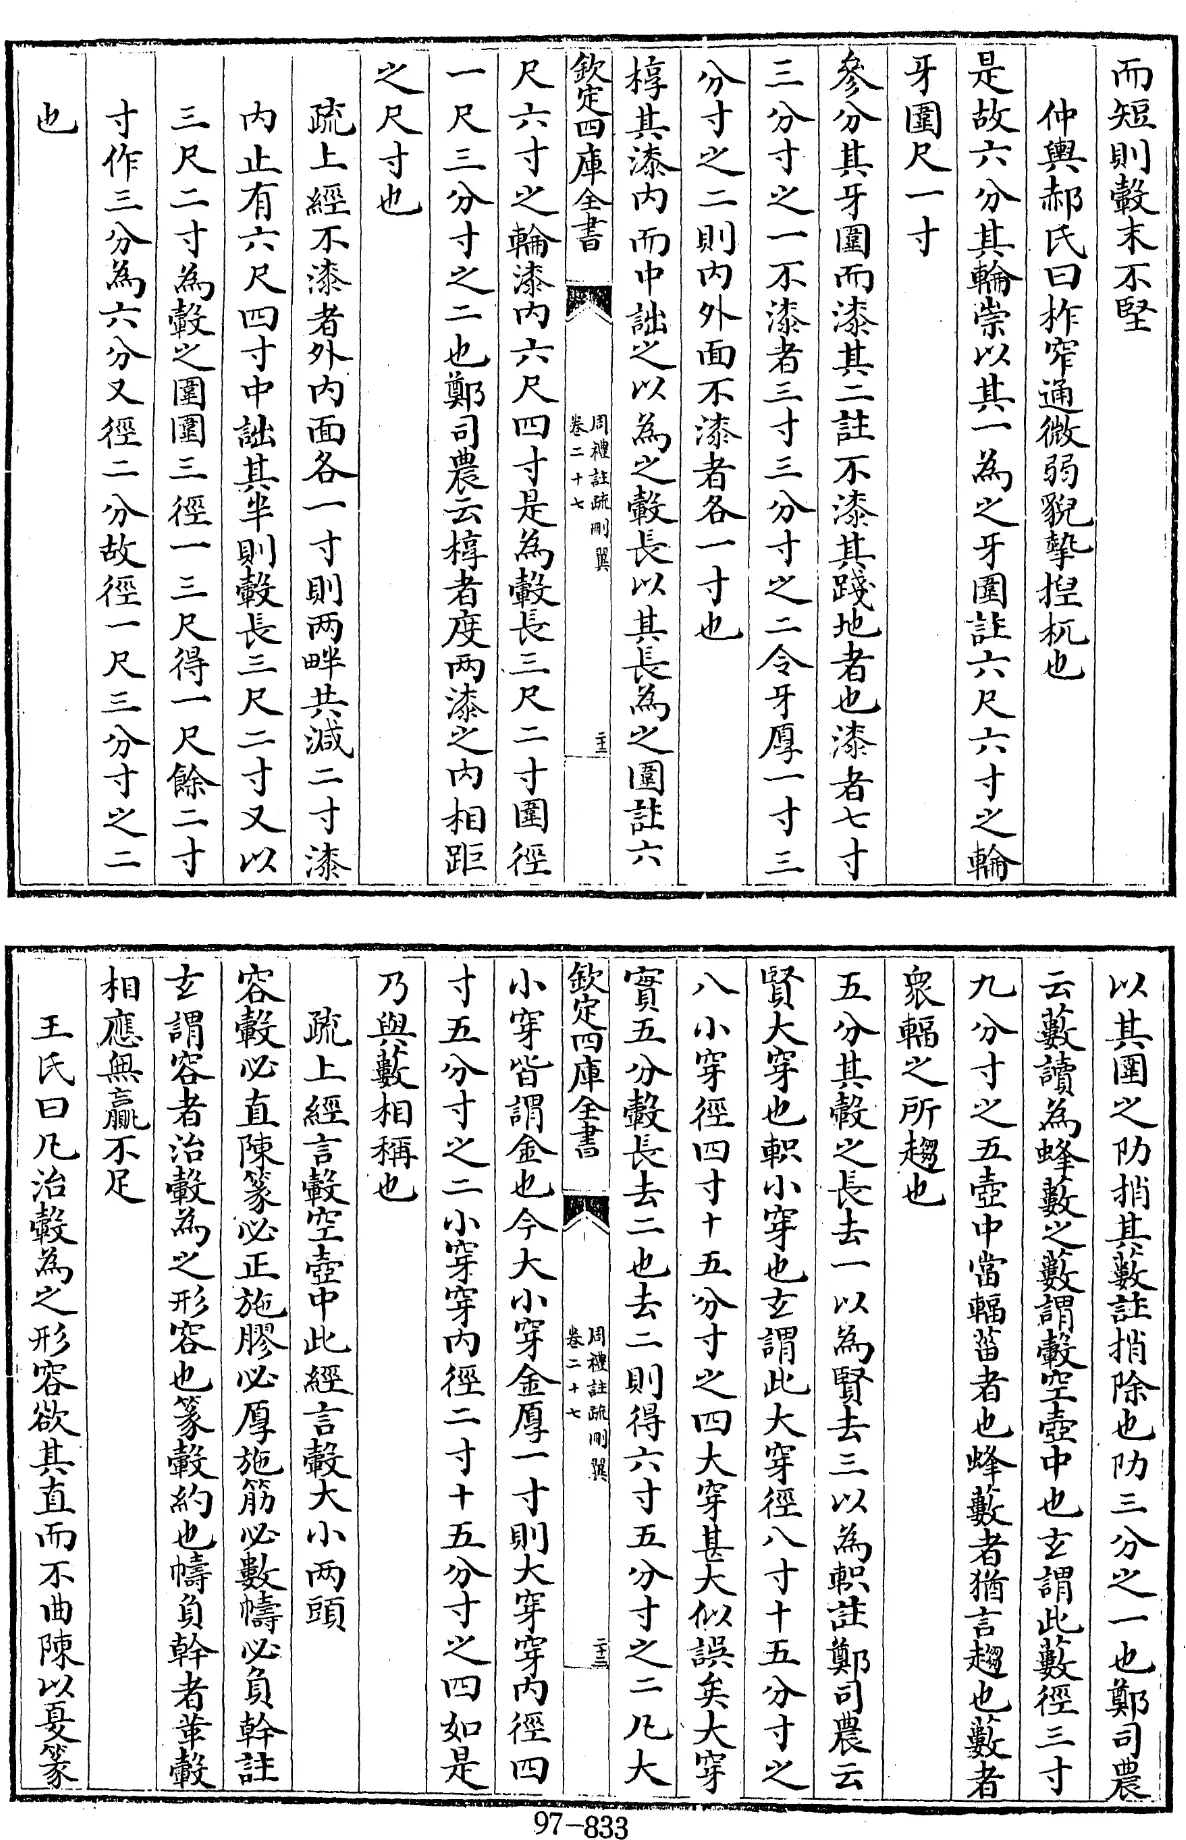 而短則轂末不堅
仲輿郝氏曰柞窄通微弱貎摯揑杌也
是故六分其輪崇以其一為之牙圍註六尺六寸之輪
牙圍尺一寸
參分其牙圍而漆其二註不漆其踐地者也漆者七寸
三分寸之一不漆者三寸三分寸之二令牙厚一寸三
分寸之二則内外面不漆者各一寸也
椁其漆内而中詘之以為之轂長以其長為之圍註六
欽定四庫全書
周禮註疏刪翼
卷二十七
二十二
尺六寸之輪漆内六尺四寸是為轂長三尺二寸圍徑
一尺三分寸之二也鄭司農云椁者度两漆之内相距
之尺寸也
疏上經不漆者外内面各一寸則两畔共減二寸漆
内止有六尺四寸中詘其半則轂長三尺二寸又以
三尺二寸為轂之圍圍三徑一三尺得一尺餘二寸
寸作三分為六分又徑二分故徑一尺三分寸之二
也
以其圍之阞捎其藪註捎除也阞三分之一也鄭司農
云藪讀為蜂藪之藪謂轂空壺中也玄謂此藪徑三寸
九分寸之五壺中當輻菑者也蜂藪者猶言趨也藪者
衆輻之所趨也
五分其轂之長去一以為賢去三以為軹註鄭司農云
賢大穿也軹小穿也玄謂此大穿徑八寸十五分寸之
八小穿徑四寸十五分寸之四大穿甚大似誤矣大穿
實五分轂長去二也去二則得六寸五分寸之二凡大
欽定四庫全書
周禮註疏刪翼
卷二十七
二十三
小穿皆謂金也今大小穿金厚一寸則大穿穿内徑四
寸五分寸之二小穿穿内徑二寸十五分寸之四如是
乃與藪相稱也
疏上經言轂空壺中此經言轂大小两頭
容轂必直陳篆必正施膠必厚施筋必數幬必負幹註
玄謂容者治轂為之形容也篆轂約也幬負幹者革轂
相應無贏不足
王氏曰凡治轂為之形容欲其直而不曲陳以夏篆
97-833